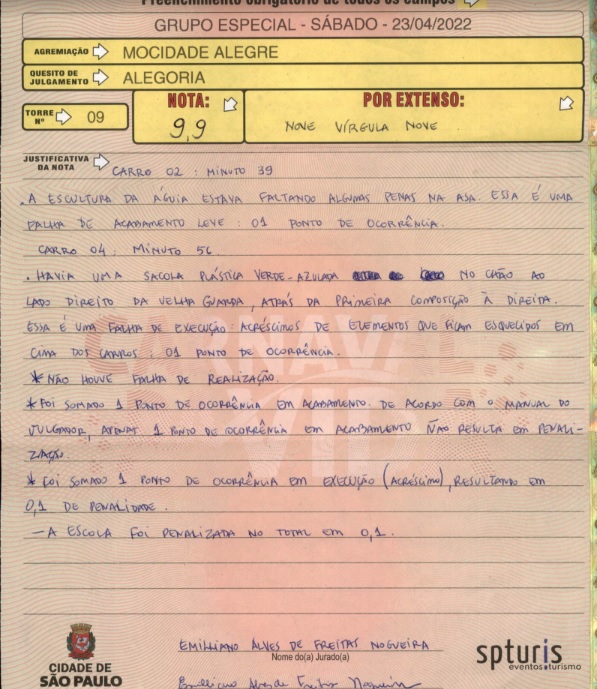 Preenchimento obrigatório de todos os campos
GRUPO ESPECIAL - SÁBADO - 23/04/2022
AGREMIAÇÃO MOCIDADE ALEGRE
QUESITO DE JULGAMENTO ALEGORIA
TORRE Nº 09
NOTA: 9,9
POR EXTENSO: NOVE VÍRGULA NOVE
JUSTIFICATIVA DA NOTA CARRO 02 : MINUTO 39
. A ESCULTURA DA ÁGUIA ESTAVA FALTANDO ALGUMAS PENAS NA ASA. ESSA É UMA
FALHA DE ACABAMENTO LEVE : 01 PONTO DE OCORRÊNCIA.
CARRO 04 : MINUTO 56
. HAVIA UMA SACOLA PLÁSTICA VERDE-AZULADA NO CHÃO AO
LADO DIREITO DA VELHA GUARDA, ATRÁS DA PRIMEIRA COMPOSIÇÃO À DIREITA.
ESSA É UMA FALHA DE EXECUÇÃO : ACRÉSCIMOS DE ELEMENTOS QUE FICAM ESQUECIDOS EM
CIMA DOS CARROS : 01 PONTO DE OCORRÊNCIA.
* NÃO HOUVE FALHA DE REALIZAÇÃO.
* FOI SOMADO 1 PONTO DE OCORRÊNCIA EM ACABAMENTO. DE ACORDO COM O MANUAL DO
JULGADOR, APENAS 1 PONTO DE OCORRÊNCIA EM ACABAMENTO NÃO RESULTA EM PENALI-
ZAÇÃO
* FOI SOMADO 1 PONTO DE OCORRÊNCIA EM EXECUÇÃO (ACRÉSCIMO), RESULTANDO EM
0,1 DE PENALIDADE.
- A ESCOLA FOI PENALIZADA NO TOTAL EM 0,1.
CARNAVAL
EMILLIANO ALVES DE FREITAS NOGUEIRA
Nome do(a) Jurado(a)
CIDADE DE
SÃO PAULO
spturis
eventos+turismo
Emilliano Alves de Freitas Nogueira